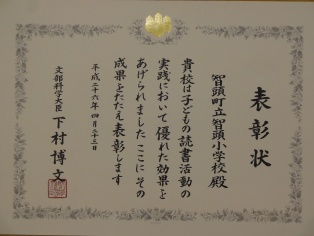 表彰状
智頭町立智頭小学校殿
貴校は子どもの読書活動の
実践において優れた効果を
あげられました ここにその
成果をたたえ表彰します
平成二十六年四月二十三日
文部科学大臣
下村博文